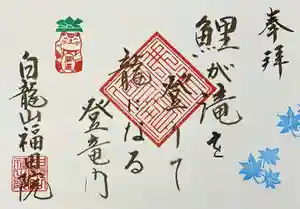 奉拝
鯉が滝を
登りて
龍になる
登竜門
白龍山福田院